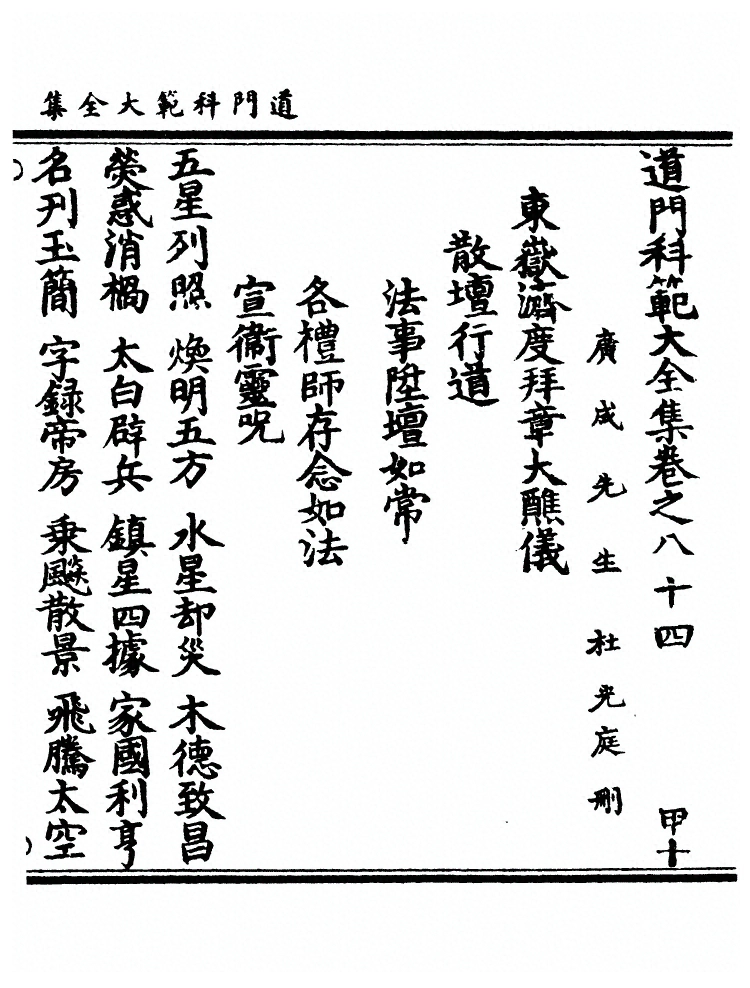 道門科範大全集
道門科範大全集卷之八十四 甲十
廣成先生杜光庭刪
東嶽濟度拜章大醮儀
散壇行道
法事陞壇如常
各禮師存念如法
宣衞靈呪
五星列照 煥明五方 水星却災 木德致昌
熒惑消禍 太白辟兵 鎮星四據 家國利亨
名刋玉簡 字録帝房 乗飈散景 飛騰太空